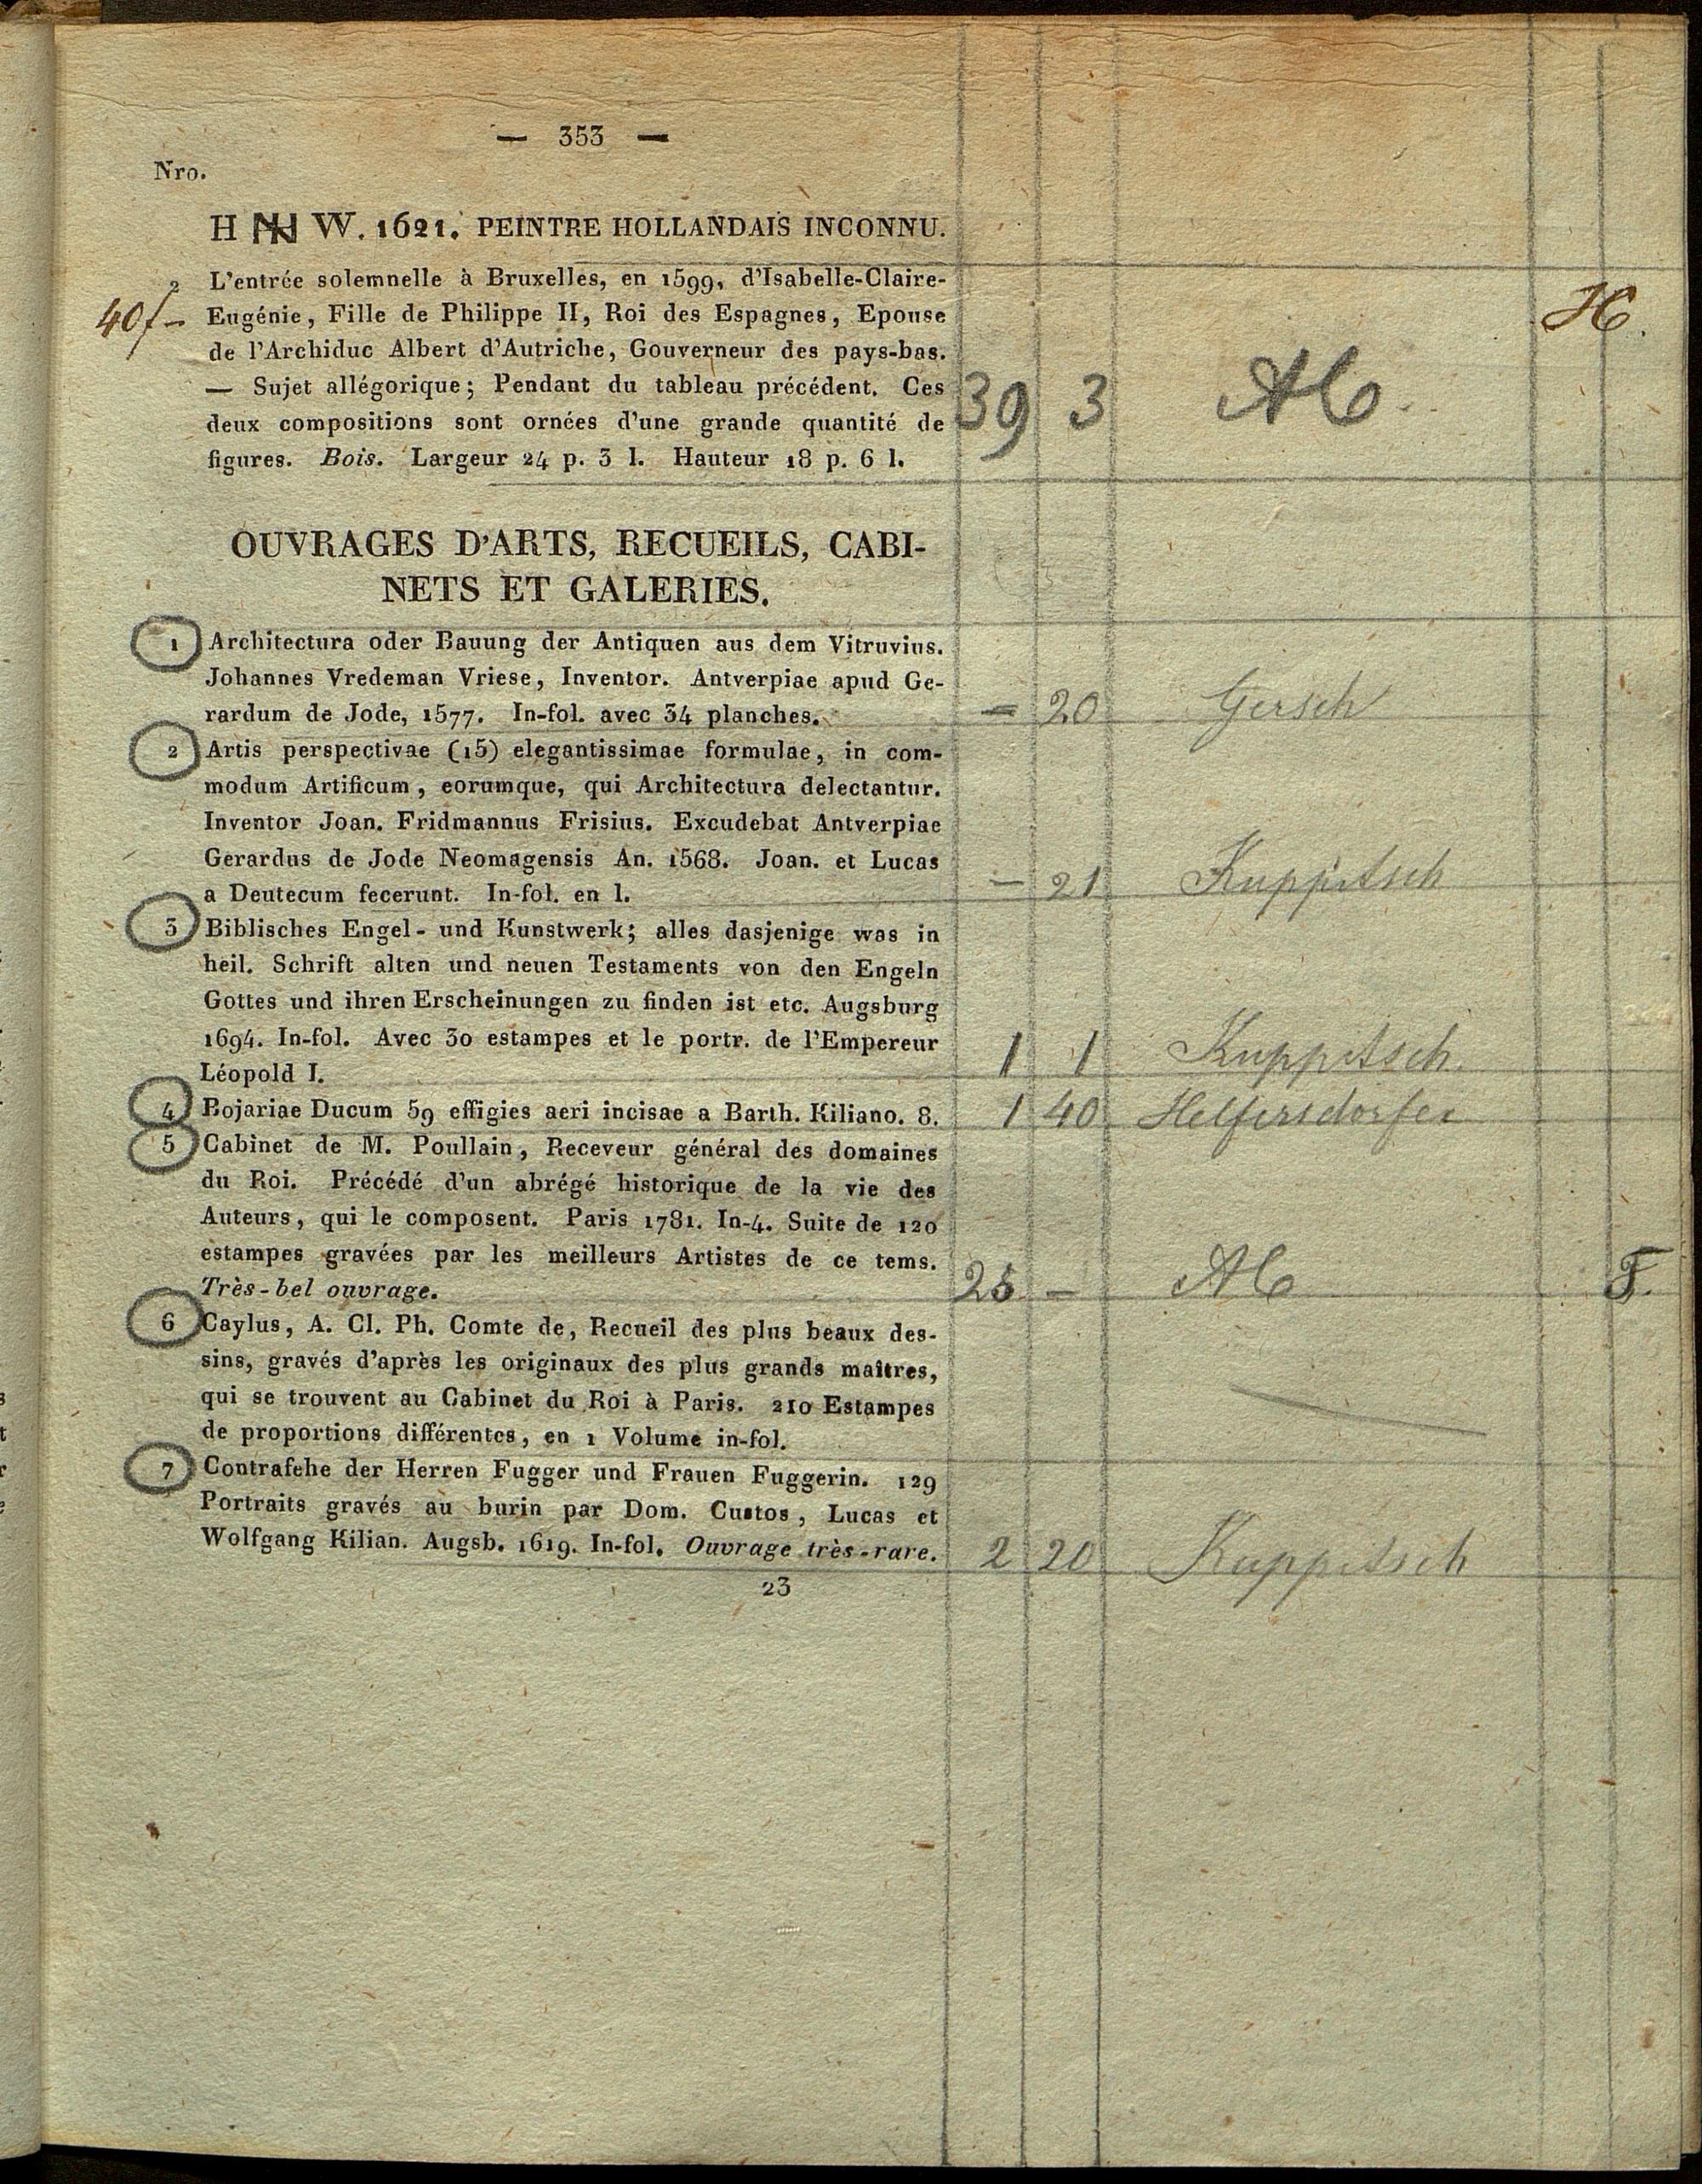 — 353 —
Nro.
H W. 1621. PEINTRE HOLLANDAIS INCONNU.
2 L'entrée solemnelle à Bruxelles, en 1599, d'Isabelle-Claire-
40f– Eugénie, Fille de Philippe II, Roi des Espagnes, Epouse H.
de l'Archiduc Albert d'Autriche, Gouverneur des pays-bas.
— Sujet allégorique; Pendant du tableau précédent. Ces 39 3
deux compositions sont ornées d'une grande quantité de
figures. Bois. Largeur 24 p. 3 l. Hauteur 18 p. 6 l.
OUVRAGES D'ARTS, RECUEILS, CABI-
NETS ET GALERIES.
1 Architectura oder Bauung der Antiquen aus dem Vitruvius.
Johannes Vredeman Vriese, Inventor. Antverpiae apud Ge-
rardum de Jode, 1577. In-fol. avec 34 planches. – 20 Gersch
2 Artis perspectivae (15) elegantissimae formulae, in com-
modum Artificum, eorumque, qui Architectura delectantur.
Inventor Joan. Fridmannus Frisius. Excudebat Antverpiae
Gerardus de Jode Neomagensis An. 1568. Joan. et Lucas
a Deutecum fecerunt. In-fol. en l. – 21 Kuppitsch
3 Biblisches Engel- und Kunstwerk; alles dasjenige was in
heil. Schrift alten und neuen Testaments von den Engeln
Gottes und ihren Erscheinungen zu finden ist etc. Augsburg
1694. In-fol. Avec 30 estampes et le portr. de l'Empereur
Léopold I. 1 1 Kuppitsch
4 Bojariae Ducum 59 effigies aeri incisae a Barth. Kiliano. 8. 1 40 Helfersdorfer
5 Cabinet de M. Poullain, Receveur général des domaines
du Roi. Précédé d'un abrégé historique de la vie des
Auteurs, qui le composent. Paris 1781. In-4. Suite de 120
estampes gravées par les meilleurs Artistes de ce tems.
Très-bel ouvrage. 25 – F.
6 Caylus, A. Cl. Ph. Comte de, Recueil des plus beaux des-
sins, gravés d'après les originaux des plus grands maîtres,
qui se trouvent au Cabinet du Roi à Paris. 210 Estampes
de proportions différentes, en 1 Volume in-fol.
7 Contrafehe der Herren Fugger und Frauen Fuggerin. 129
Portraits gravés au burin par Dom. Custos, Lucas et
Wolfgang Kilian. Augsb. 1619. In-fol. Ouvrage très-rare. 2 20 Kuppitsch
23